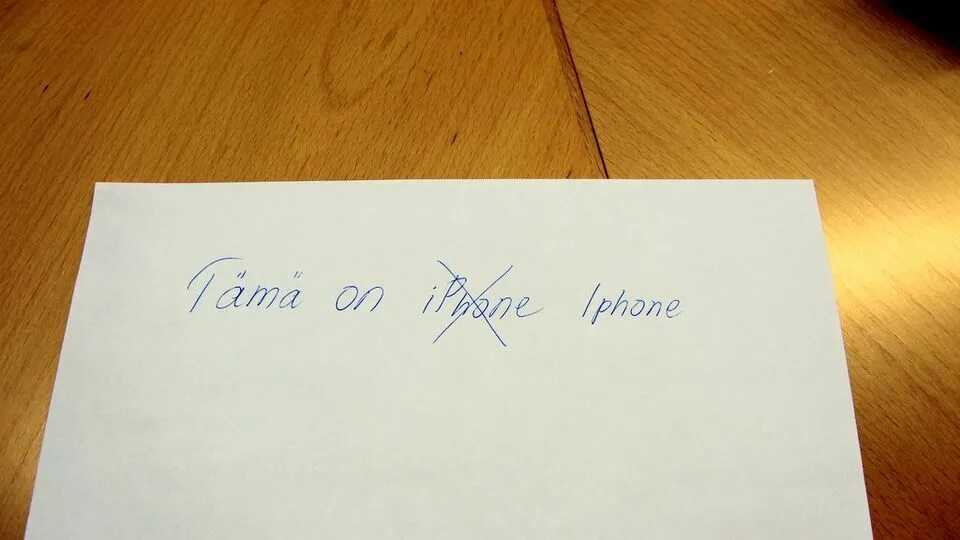 Tämä on iPhone Iphone